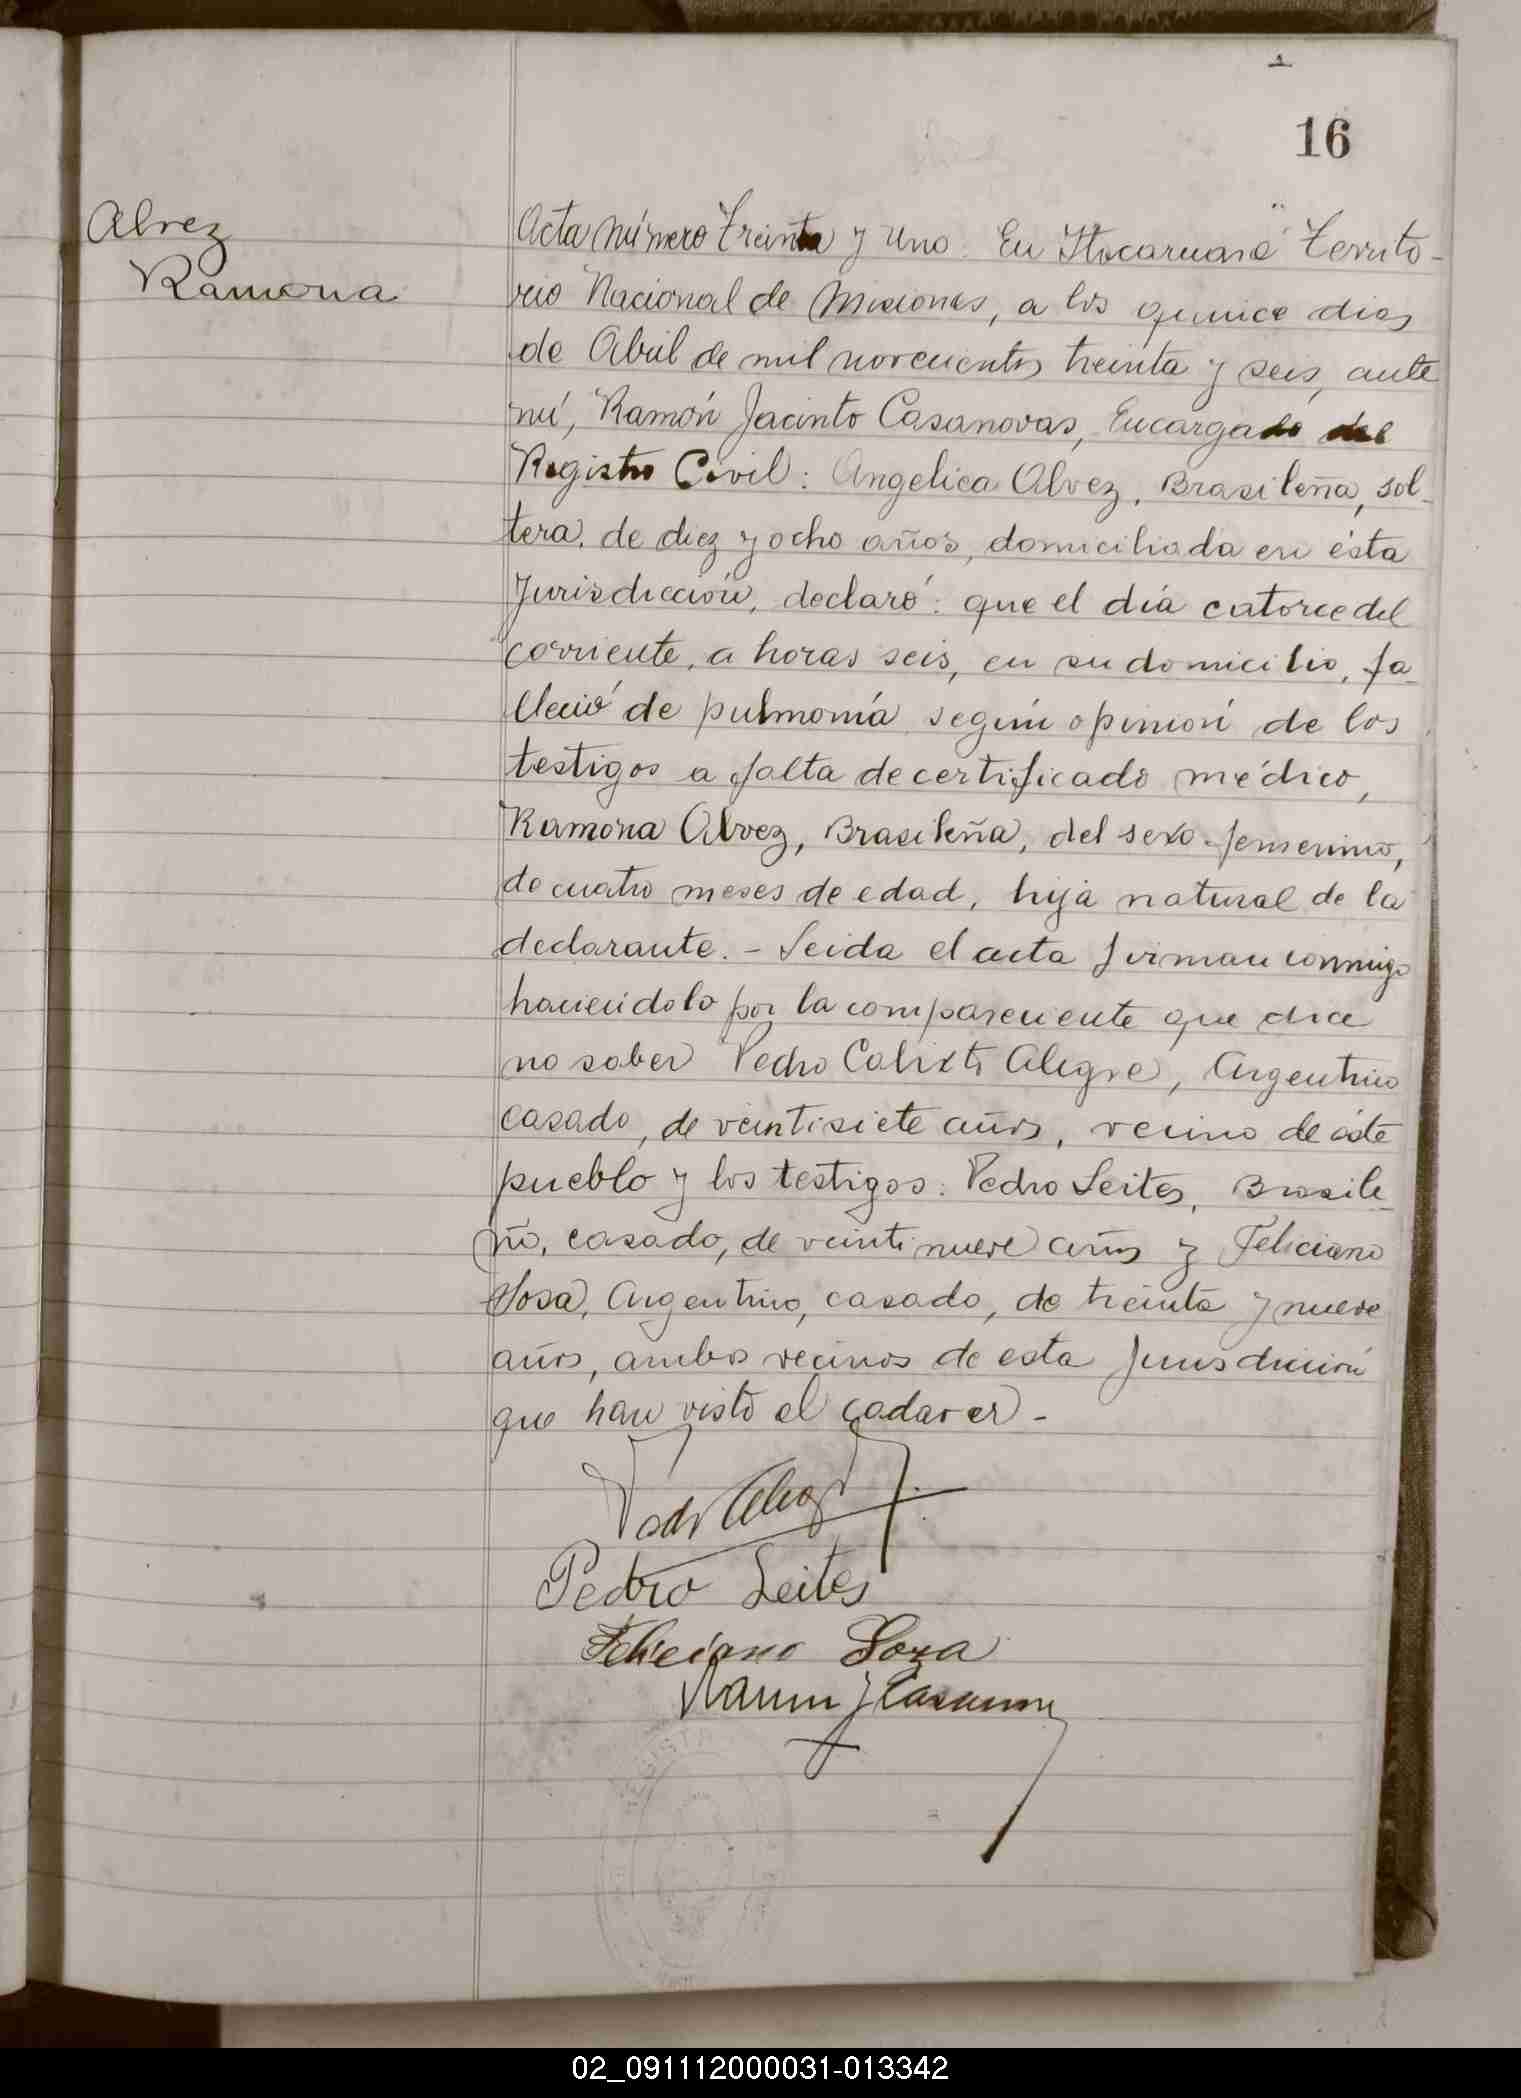 16
Alvez
Ramona
Acta número treinta y uno. En Itacaruaré Territo-
rio Nacional de Misiones, a los quince dias
de Abril de mil novecientos treinta y seis, ante
mí, Ramón Jacinto Casanovas, Encargado del
Registro Civil: Angelica Alvez, Brasileña, sol-
tera, de diez y ocho años, domiciliada en ésta
Jurisdicción, declaró: que el día catorce del
corriente, a horas seis, en su domicilio, fa-
lleció de pulmonía según opinión de los
testigos a falta de certificado médico,
Ramona Alvez, Brasileña, del sexo femenino,
de cuatro meses de edad, hija natural de la
declarante. - Leida el acta firman conmigo
haciendolo por la compareciente que dice
no saber Pedro Calixto Alegre, Argentino
casado, de veintisiete años, vecino de éste
pueblo y los testigos: Pedro Leites, Brasile-
ño, casado, de veintinueve años y Feliciano
Sosa, Argentino, casado, de treinta y nueve
años, ambos vecinos de esta Jurisdicción
que han visto el cadaver -
Pedro Leites
Feliciano Soza
Ramon J Casanova
02_091112000031-013342